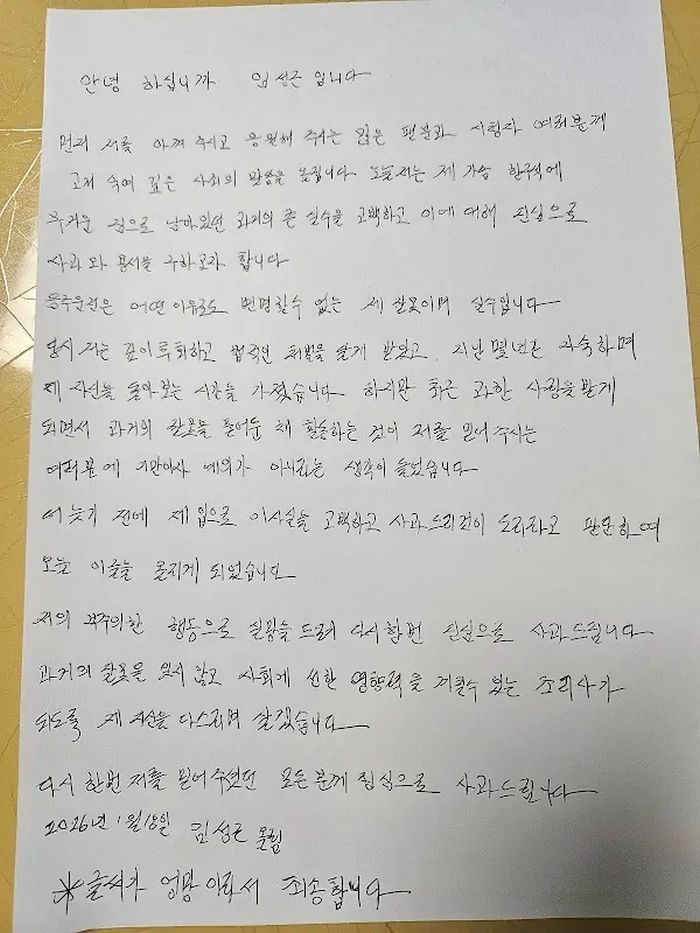 안녕 하십니까 임성근 입니다
먼저 저를 아껴 주시고 응원해 주시는 많은 팬분과 시청자 여러분께
고개 숙여 깊은 사죄의 말씀을 올립니다 오늘 저는 제 가슴 한구석에
무거운 짐으로 남아있던 과거의 큰 실수를 고백하고 이에 대해 진심으로
사과와 용서를 구하고자 합니다
음주운전은 어떤 이유로도 변명할수 없는 제 잘못이며 실수입니다
당시 저는 깊이 후회하고 법적인 처벌을 달게 받았고, 지난 몇년간 자숙하며
제 자신을 돌아보는 시간을 가졌습니다 하지만 최근 과한 사랑을 받게
되면서 과거의 잘못을 묻어둔 채 활동하는 것이 저를 믿어 주시는
여러분에 기만이자 예의가 아니라는 생각이 들었습니다
더 늦기 전에 제 입으로 이사실을 고백하고 사과드리것이 도리라고 판단하여
오늘 이글을 올리게 되었습니다
저의 부주의한 행동으로 실망을 드려 다시한번 진심으로 사과드립니다
과거의 잘못을 잊지 않고 사회에 선한 영향력을 끼칠수 있는 조리사가
되도록 제 자신을 다스리며 살겠습니다
다시 한번 저를 믿어주셨던 모든분께 진심으로 사과드립니다
2026년 1월 18일 임성근 올림
※글씨가 엉망 이라서 죄송합니다